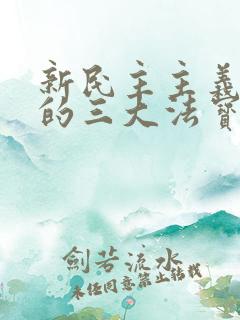 新民主主义
的三大法宝
剑若流水
未经同意禁止转载